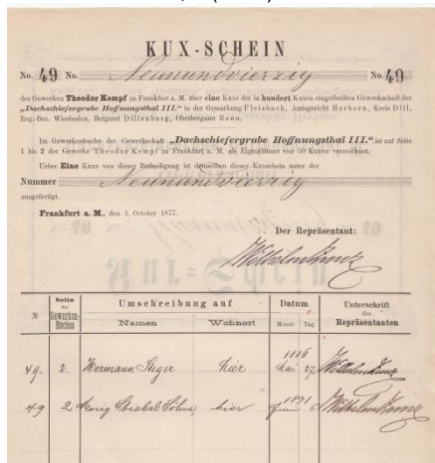 KUX-SCHEIN
No. 49 No. Neunundvierzig No. 49
des Gewerken Theodor Kempf zu Frankfurt a. M. über eine Kuxe der in hundert Kuxen eingetheilten Gewerkschaft der
„Dachschiefergrube Hoffnungsthal III.“ in der Gemarkung Fleisbach, Amtsgericht Herborn, Kreis Dill,
Reg.-Bez. Wiesbaden, Bergamt Dillenburg, Oberbergamt Bonn.
Im Gewerkenbuche der Gewerkschaft „Dachschiefergrube Hoffnungsthal III.“ ist auf Seite
1 bis 2 der Gewerke Theodor Kempf zu Frankfurt a. M. als Eigenthümer von 50 Kuxen verzeichnet.
Ueber Eine Kuxe von dieser Betheiligung ist demselben dieser Kuxschein unter der
Nummer Neunundvierzig
ausgefertigt.
Frankfurt a. M., den 1. October 1877.
Der Repräsentant:
№ Seite des Gewerken-Buches Umschreibung auf Datum Unterschrift des Repräsentanten
Namen Wohnort Monat Tag
49. 2. Hermann hier 1886 Mai 27.
49 2. Söhne, hier 1891 Juni